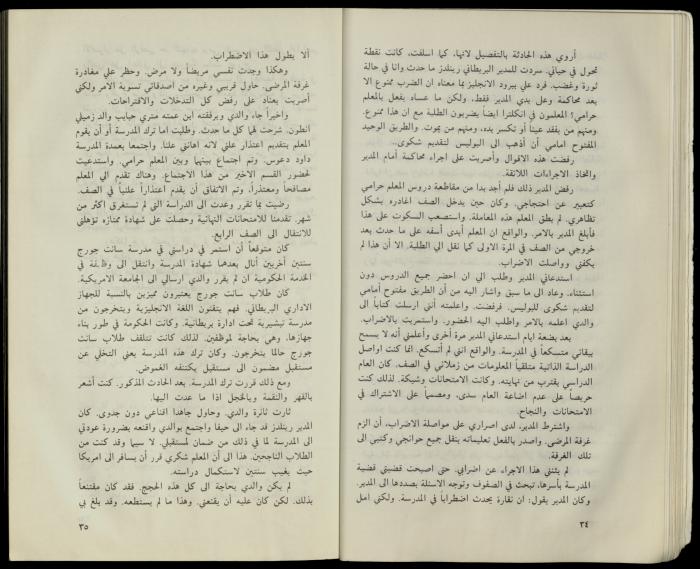 أروي هذه الحادثة بالتفصيل لانها، كما اسلفت، كانت نقطة
تحول في حياتي. سردت للمدير البريطاني رينلدز ما حدث وانا في حالة
ثورة وغضب. فرد علي ببرود الانجليز بما معناه ان الضرب ممنوع الا
بعد محاكمة وعلى يدي المدير فقط، ولكن ما عساه يفعل بالمعلم
حرامي؟ المعلمون في انكلترا ايضاً يضربون الطلبة مع ان هذا ممنوع.
ومنهم من يفقد عيناً أو تكسر يده، ومنهم من يموت. والطريق الوحيد
المفتوح امامي أن أذهب الى البوليس لتقديم شكوى..
رفضت هذه الاقوال وأصريت على اجراء محاكمة أمام المدير
واتخاذ الاجراءات اللائقة.
رفض المدير ذلك فلم أجد بدا من مقاطعة دروس المعلم حرامي
كتعبير عن احتجاجي. وكان حين يدخل الصف اغادره بشكل
تظاهري. لم يطق المعلم هذه المعاملة. واستصعب السكوت على هذا
فأبلغ المدير بالامر. والواقع ان المعلم أبدى أسفه على ما حدث بعد
خروجي من الصف في المرة الاولى كما نقل الي الطلبة. الا أن هذا لم
يكفني وواصلت الاضراب.
استدعاني المدير وطلب الي ان احضر جميع الدروس دون
استثناء. وعاد الى ما سبق واشار اليه من أن الطريق مفتوح أمامي
لتقديم شكوى للبوليس. فرفضت. واعلمته أنني ارسلت كتاباً الى
والدي اعلمه بالامر واطلب اليه الحضور. واستمريت بالاضراب.
بعد بضعة ايام استدعاني المدير مرة أخرى وأعلمني أنه لا يسمح
ببقائي متسكعاً في المدرسة. والواقع انني لم أتسكع. انما كنت اواصل
الدراسة الذاتية متلقياً المعلومات من زملائي في الصف. كان العام
الدراسي يقترب من نهايته. وكانت الامتحانات وشيكة. لذلك كنت
حريصاً على عدم اضاعة العام سدى، ومصمماً على الاشتراك في
الامتحانات والنجاح.
واشترط المدير، لدى اصراري على مواصلة الاضراب، أن الزم
غرفة المرضى. واصدر بالفعل تعليماته بنقل جميع حوائجي وكتبي الى
تلك الغرفة.
لم يثنني هذا الاجراء عن اضرابي. حتى اصبحت قضيتي قضية
المدرسة بأسرها، تبحث في الصفوف وتوجه الاسئلة بصددها الى المدير.
وكان المدير يقول: ان نقارة يحدث اضطراباً في المدرسة. ولكني امل
٣٤
ألا يطول هذا الاضطراب.
وهكذا وجدت نفسي مريضاً ولا مرض. وحظر علي مغادرة
غرفة المرضى. حاول قريبي وغيره من أصدقائي تسوية الامر ولكني
أصريت بعناد على رفض كل التدخلات والاقتراحات.
واخيراً جاء والدي وبرفقته ابن عمته متري حبايب والد زميلي
أنطون. شرحت لهما كل ما حدث. وطلبت اما ترك المدرسة أو أن يقوم
المعلم بتقديم اعتذار علني لانه اهانني علنا. واجتمعا بعمدة المدرسة
داود دعوس. وتم اجتماع بينهما وبين المعلم حرامي. واستدعيت
لحضور القسم الاخير من هذا الاجتماع. وهناك تقدم الي المعلم
مصافحاً ومعتذراً، وتم الاتفاق أن يقدم اعتذاراً علنياً في الصف.
رضيت بما تقرر وعدت الى الدراسة التي لم تستغرق اكثر من
شهر. تقدمنا للامتحانات النهائية وحصلت على شهادة ممتازه تؤهلني
للانتقال الى الصف الرابع.
كان متوقعاً أن استمر في دراستي في مدرسة سانت جورج
سنتين أخريين أنال بعدهما شهادة المدرسة وانتقل الى وظيفة في
الخدمة الحكومية ان لم يقرر والدي ارسالي الى الجامعة الامريكية.
كان طلاب سانت جورج يعتبرون مميزين بالنسبة للجهاز
الاداري البريطاني. فهم يتقنون اللغة الانجليزية ويتخرجون من
مدرسة تبشيرية تحت ادارة بريطانية. وكانت الحكومة في طور بناء
جهازها. وهي بحاجة لموظفين. لذلك كانت تتلقف طلاب سانت
جورج حالما يتخرجون. وكان ترك هذه المدرسة يعني التخلي عن
مستقبل مضمون الى مستقبل يكتنفه الغموض.
ومع ذلك قررت ترك المدرسة. بعد الحادث المذكور. كنت أشعر
بالقهر والنقمة وبالخجل اذا ما عدت اليها.
ثارت ثائرة والدي. وحاول جاهدا اقناعي دون جدوى. كان
المدير رينلدز قد جاء الى حيفا واجتمع بوالدي واقنعه بضرورة عودتي
الى المدرسة لما في ذلك من ضمان لمستقبلي. لا سيما وقد كنت من
الطلاب الناجحين. هذا الى أن المعلم شكري قرر أن يسافر الى امريكا
حيث يغيب سنتين لاستكمال دراسته.
لم يكن والدي بحاجة الى كل هذه الحجج. فقد كان مقتنعاً
بذلك. لكن كان عليه أن يقنعني. وهذا ما لم يستطعه. وقد بلغ بي
٣٥